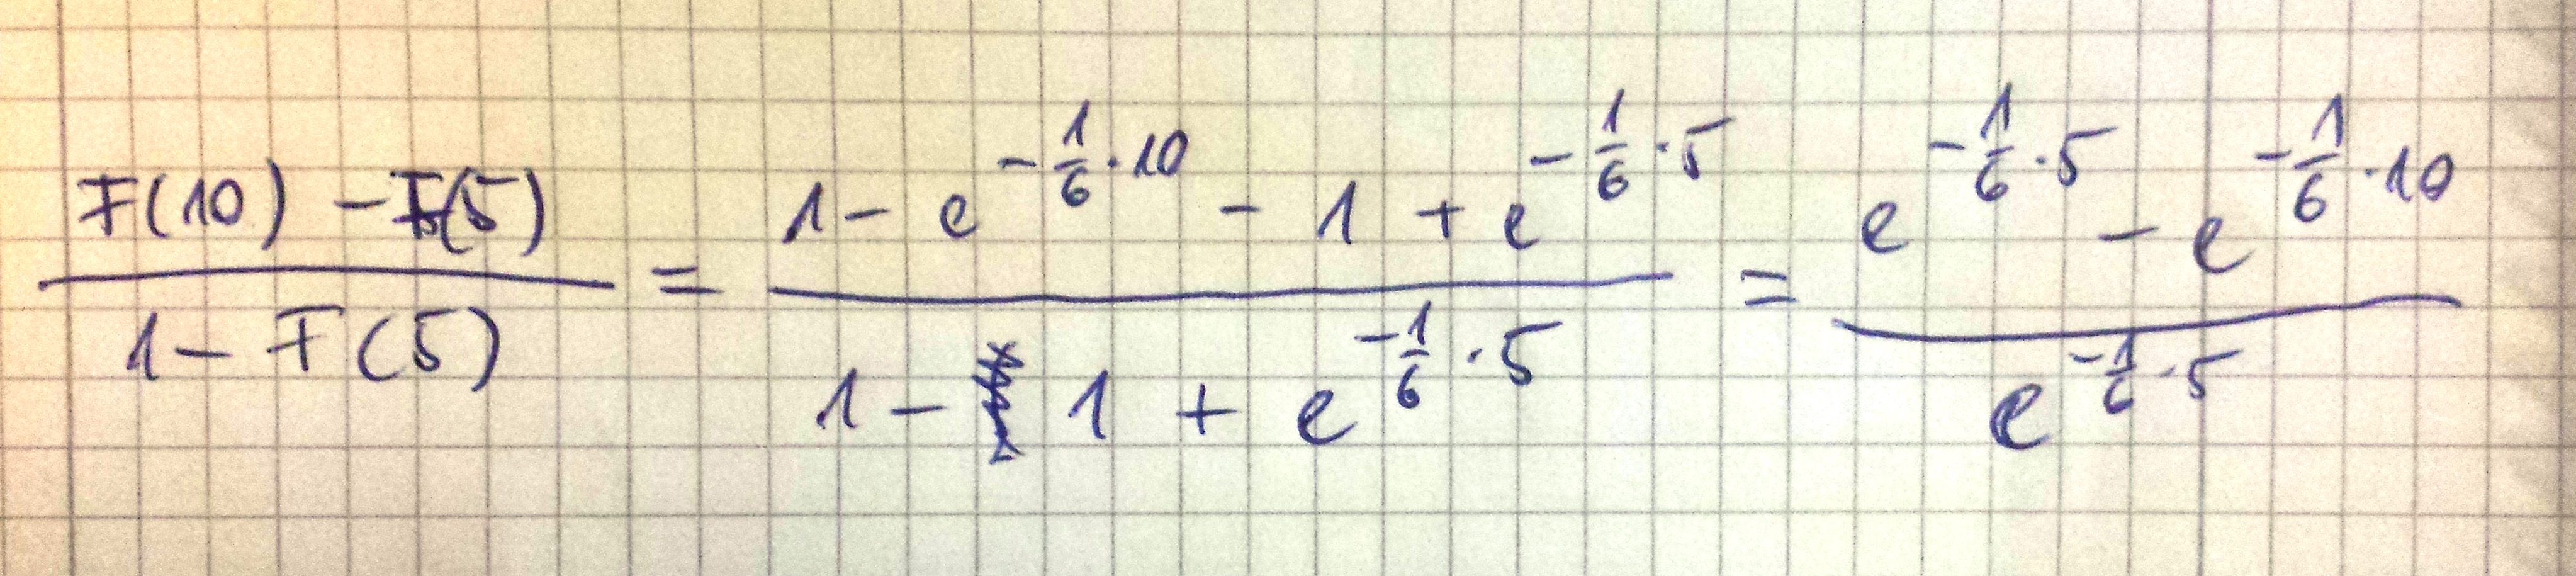 \frac{F(10) - F(5)}{1 - F(5)} = \frac{1 - e^{-\frac{1}{6} \cdot 10} - 1 + e^{-\frac{1}{6} \cdot 5}}{1 - 1 + e^{-\frac{1}{6} \cdot 5}} = \frac{e^{-\frac{1}{6} \cdot 5} - e^{-\frac{1}{6} \cdot 10}}{e^{-\frac{1}{6} \cdot 5}}